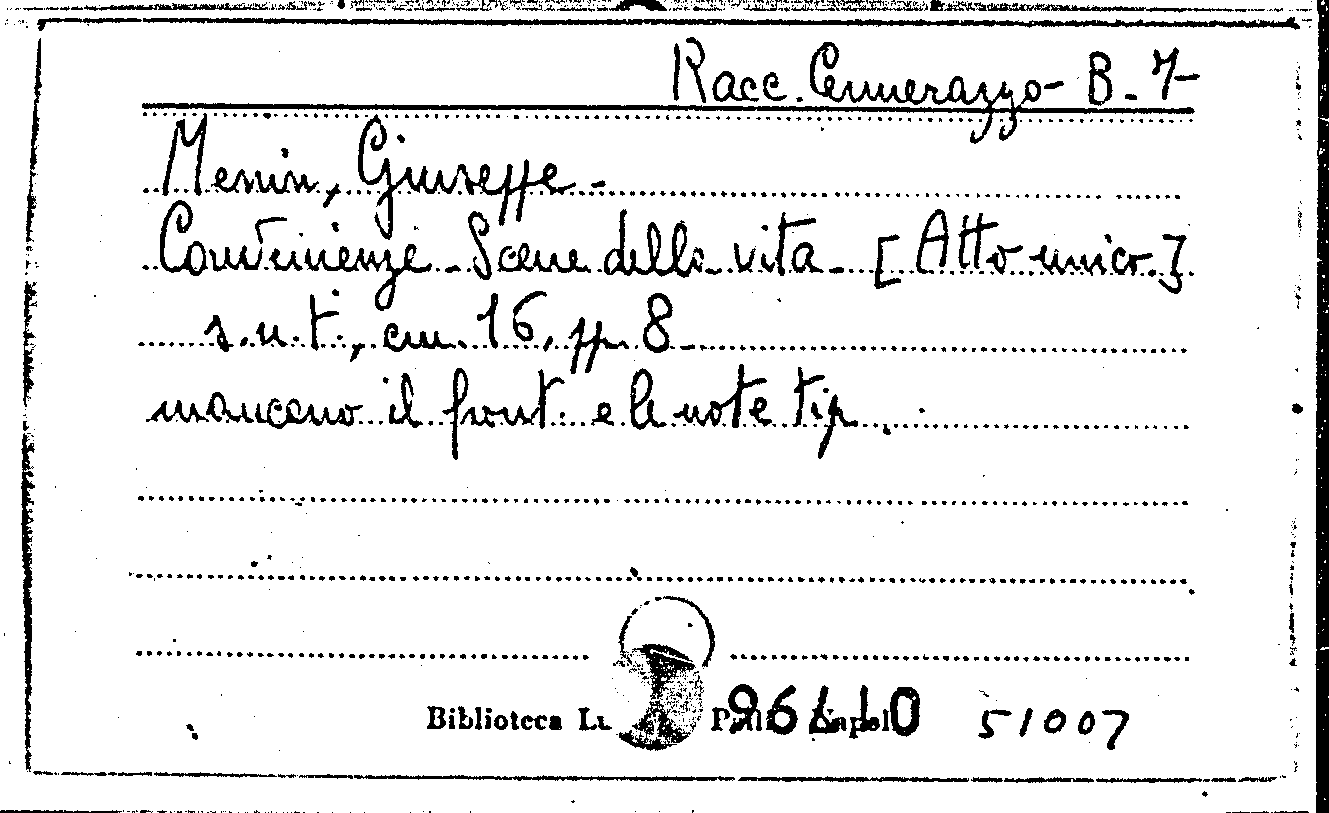 Racc. Cennerazzo - B. 7-
Menin, Giuseppe -
Convenienze - Scene della vita - [Atto unico.]
s.n.t., cm. 16, pp. 8 -
mancano il front. e le note tip.
Biblioteca
51007